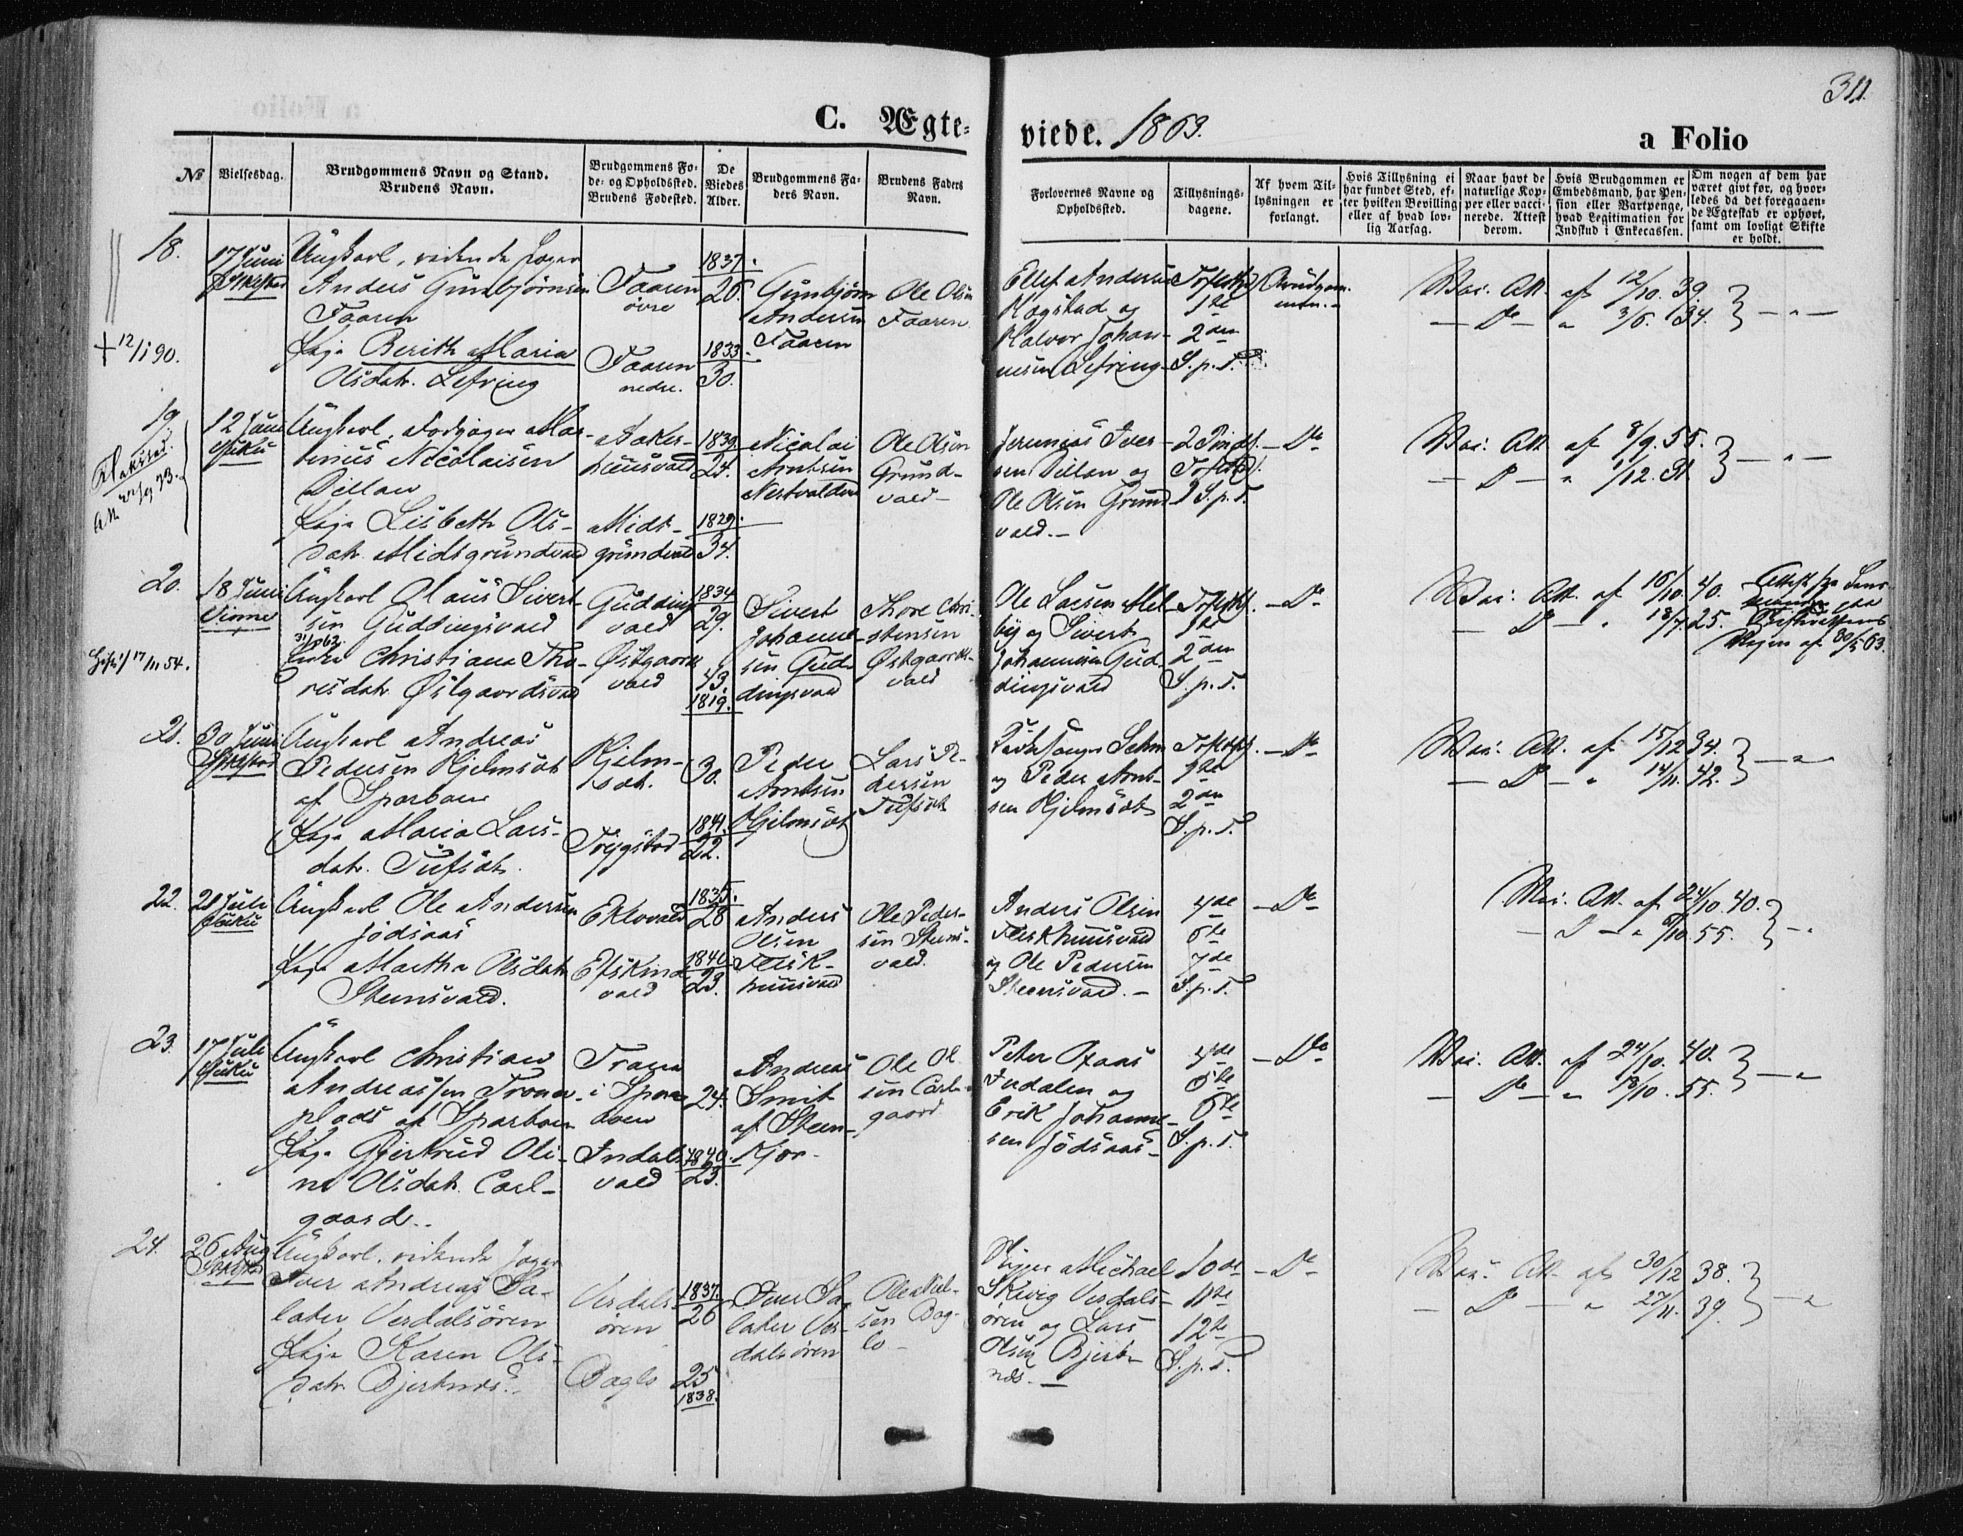 311.
C. Ægte-
viede. 1863.
a Folio
№
Vielsesdag.
Brudgommens Navn og Stand.
Brudens Navn.
Brudgommens Fø-
de- og Opholdssted.
Brudens Fødested.
De
Viedes
Alder.
Brudgommens Fa-
ders Navn.
Brudens Faders
Navn.
Forlovernes Navne og
Opholdssted.
Tillysnings-
dagene.
Af hvem Til-
lysningen er
forlangt.
Hvis Tillysning ei
har fundet Sted, ef-
ter hvilken Bevilling
eller af hvad lov-
lig Aarsag.
Naar havt de
naturlige Kop-
per eller vacci-
nerede. Attest
derom.
Hvis Brudgommen er
Embedsmand, har Pen-
sion eller Vartpenge,
hvad Legitimation for
Indskud i Enkecassen.
Om nogen af dem har
været givt før, og hvor-
ledes da det foregaaen-
de Ægteskab er ophørt,
samt om lovligt Skifte
er holdt.
18.
17 Juni
Ungkarl, ridende Jæger
Anders Gunbjørnsen
Faaren
Pige Berith Maria
Olsdatr. Lefring
Faaren
øvre
Faaren
nedre.
1837.
26.
1833.
30.
Gunbjørn
Andersen
Faaren
Ole Olsen
Faaren
Ellef Andersen
Kogstad og
Halvor Johan-
nesen Lefring
1ste
2den
S. p. T.
Brudgom-
men.
Vac. Att. af 12/10. 39.
— Do — " 3/6. 34.
— " —
+ 12/1 90.
19.
12 Juni
Vuku
Ungkarl, Fodjæger Mar-
tinus Nicolaisen
Dillan
Pige Lisbeth Ols-
datr. Midtgrundvald
Aaker-
huusvald
Midt-
grundvald
1839.
24.
1829.
34.
Nicolai
Arntsen
Nestvolden
Ole Olsen
Grund-
vald
Jeremias Iver-
sen Dillan og
Ole Olsen Grund-
vald. —
S. p. T.
— Do
Vac. Att. af 8/9. 55.
— Do — " 1/12. 31.
— " —
20.
18 Juni
Vinne
Ungkarl Olaus Sivert-
sen Guddingsvald
Enke Christiana Tho-
resdatr. Østgaardsvald
Guddings
vald
Østgaards
vald
1834
29.
43.
1819.
Sivert
Johanne-
sen Gud-
dingsvald
Thore Chri-
stensen
Østgaards-
vald
Ole Larsen Mel-
by og Sivert
Johannesen Gud-
dingsvald
1ste
2den
S. p. T.
— Do
Vac. Att. af 16/10. 40.
— Do — " 18/7. 25.
Attest fra Lens-
manden
21.
30 Juni
Ungkarl Andreas
Pedersen Hjelmsæt
af Sparboen
Pige Maria Lars-
datr. Tufsæt.
Hjelm-
sæt.
Trygstad
30.
1841.
22.
Peder
Arntsen
Hjelmsæt
Lars Pe-
dersen
Tufsæt
og Peder Arnt-
sen Hjelmsæt
1ste
2den
S. p. T.
— Do
Vac. Att. af 15/12 34.
— Do — " 14/11. 42.
— " —
22.
21 Juli
Vuku
Ungkarl Ole Andersen
Jødsaas
Pige Martha Olsdatr.
Steensvald.
Eklovald
vald
1835.
28
1840
23.
Anders
Olsen
huusvald
Ole Peder-
sen Steens-
vald.
Anders Olsen
og Ole Pedersen
Steensvald. —
S. p. T.
— Do
Vac. Att. af 24/10. 40.
55.
23.
17 Juli
Vuku
Ungkarl Christian
Andreassen Trona
plads af Sparboen
Pige Gjertrud Oli-
na Olsdatr. Carl-
gaard.
Trona
i Spar-
boen
Indals
vald
24.
1840.
23.
Andreas
Smit
af Steen-
kjær.
Ole Ol-
sen Carl-
gaard
Peter Oxaas
Indalen og
Erik Johanne-
sen Jødsaas
S. p. T.
— Do
Vac. Att. af 24/10. 40.
— Do — " 13/10. 55.
— " —
24.
26 Aug
Ungkarl, ridende Jæger
Iver Andreas Sa-
later Verdalsøren
Pige Karen Ols-
datr. Bjertnes.
Verdals-
øren
Baglo
1837.
26
25
1838.
Iver Sa-
later Ver-
dalsøren
Ole Niel-
sen Bag-
lo
Michael
Skivig Verdals-
øren og Lars
Olsen Bjert-
næs. —
10de
11te
12te
S. p. T.
— Do
Vac. Att. af 30/12 38.
— Do — " 27/11. 39.
— " —